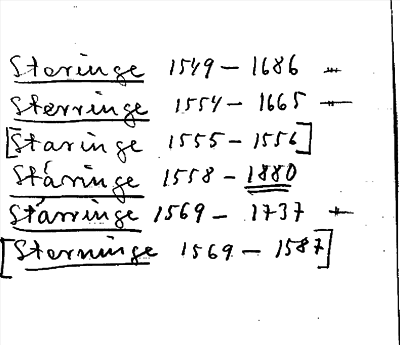 Staringe 1549 – 1686
Starringe 1554 – 1665
[Staringe 1555 – 1556]
Stáringe 1558 – 1880
Stárringe 1569 – 1737
[Starninge 1569 – 1587]